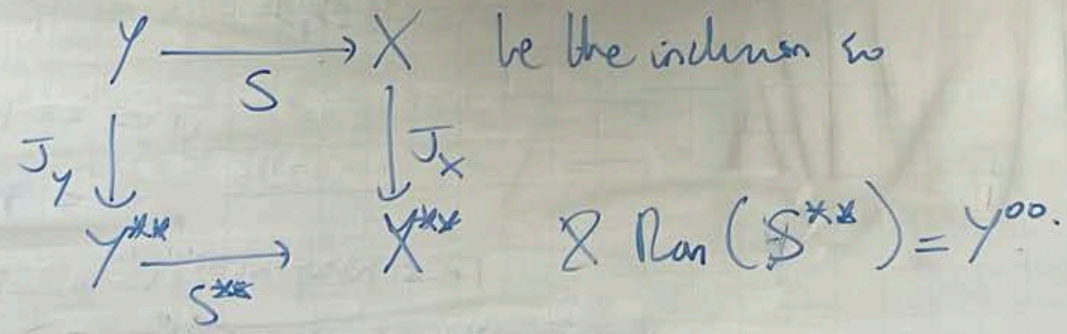 Y → X be the inclusion so
S
J_Y ↓ ↓ J_X
Y** → X** & Ran (S**) = Y⁰⁰.
S**